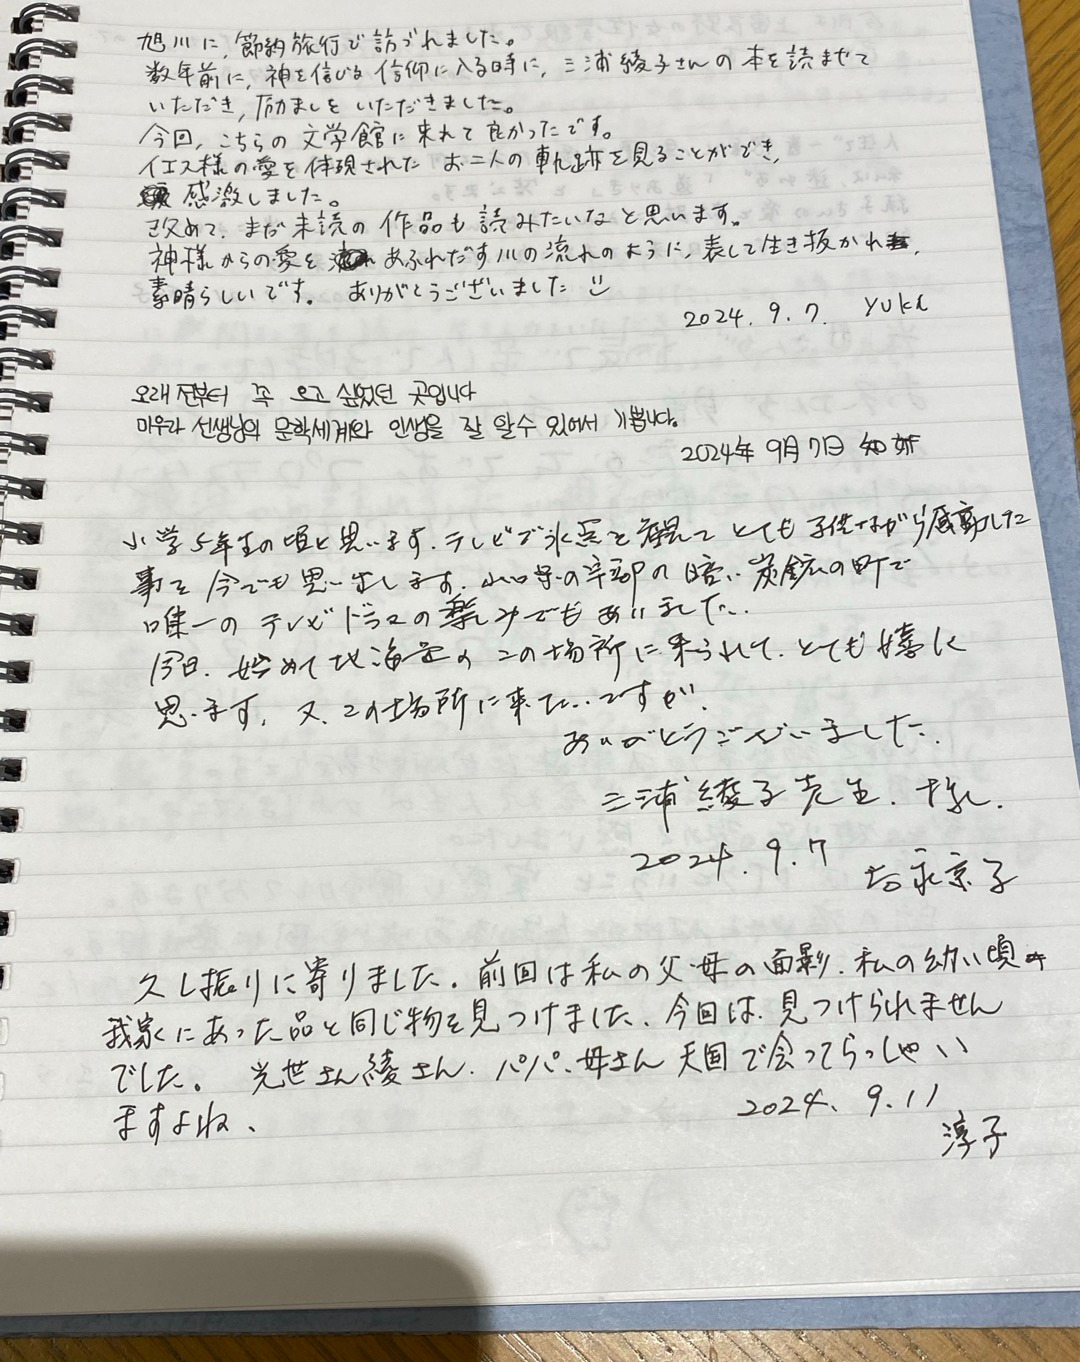 旭川に、節約旅行で訪づれました。
数年前に、神を信じる信仰に入る時に、三浦綾子さんの本を読ませて
いただき、励ましをいただきました。
今回、こちらの文学館に来れて良かったです。
イエス様の愛を体現されたお二人の軌跡を見ることができ、
感激しました。
改めて、まだ未読の作品も読みたいなと思います。
神様からの愛をあふれだす川の流れのように、表して生き抜かれ、
素晴らしいです。ありがとうございました
2024.9.7. YUKA
오래 전부터 꼭 오고 싶었던 곳입니다
미우라 선생님의 문학세계와 인생을 잘 알 수 있어서 기쁩니다.
2024年9月7日
小学5年生の頃と思います。テレビで氷点を観てとても子供ながら感動した
事を今でも思い出します。山口県の宇部の暗い炭鉱の町で
唯一のテレビドラマの楽しみでもありました。
今日、始めて北海道のこの場所に来られて、とても嬉く
思います。又、この場所に来たいですが、
ありがとうございました。
三浦綾子先生、様。
2024.9.7
永京子
久し振りに寄りました。前回は私の父・母の面影、私の幼い頃
我家にあった品と同じ物を見つけました、今回は、見つけられません
でした。 光世さん綾さん、パパ、母さん天国で会ってらっしゃい
ますよね、
2024.9.11
淳子